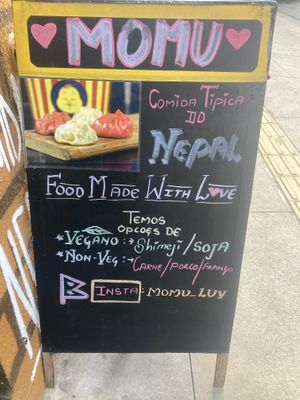 MOMU
COMIDA TÍPICA
DO
NEPAL
FOOD MADE WITH LOVE
TEMOS
OPÇOES DE
*VEGANO:→ Shimeji/SOJA
*NON-VEG:→ CARNE/PORCO/FRANGO
INSTA: MOMU_LUV